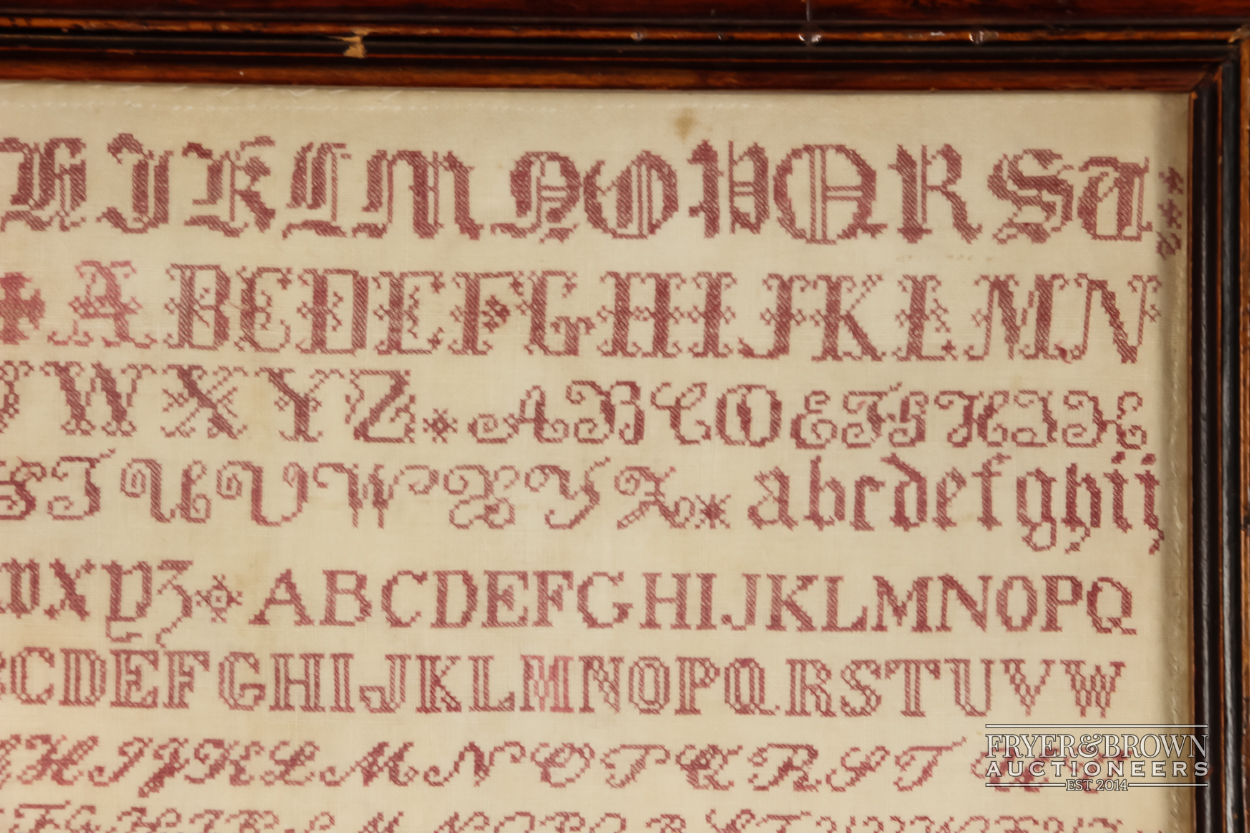 H I K L M N O P Q R S T
A B C D E F G H I J K L M N
W X Y Z A B C D E F G H I K
S T U V W X Y Z a b c d e f g h i j
w x y z A B C D E F G H I J K L M N O P Q
C D E F G H I J K L M N O P Q R S T U V W
H I J K L M N O P Q R S T U V
FRYER & BROWN
AUCTIONEERS
EST 2014